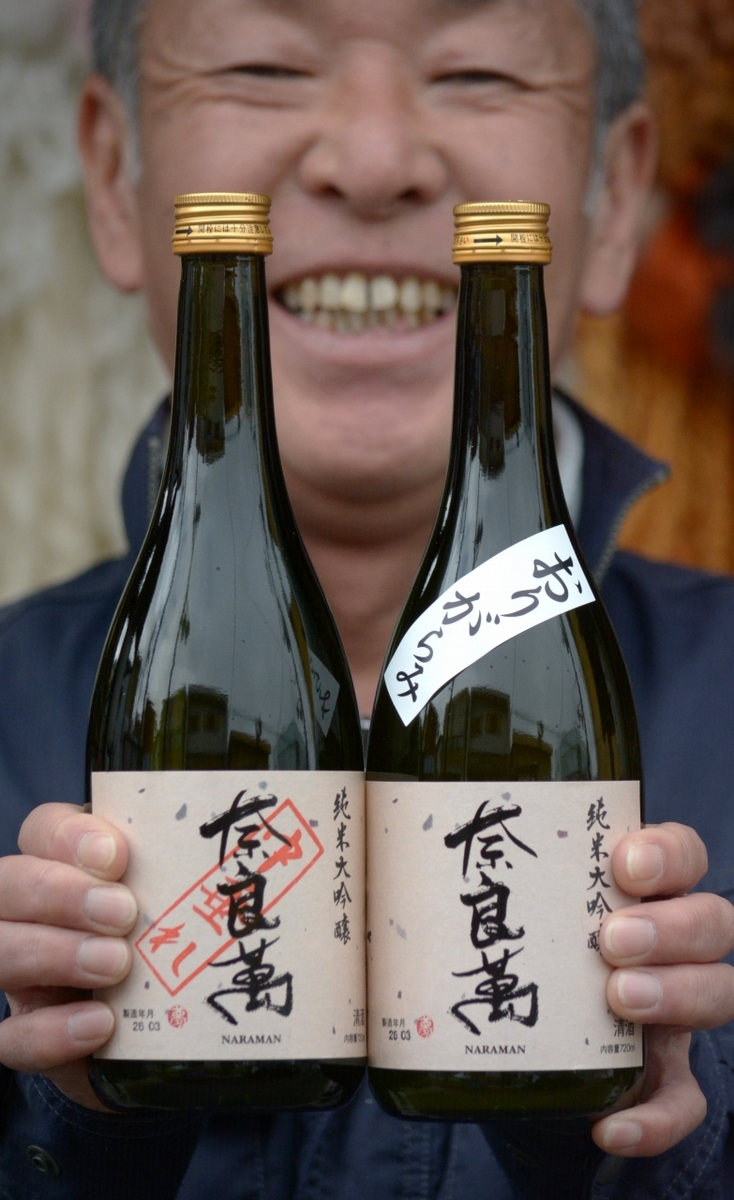 開栓には十分注意し
開栓には十
おりがらみ
純米大吟醸
奈良萬
中垂れ
製造年月
26 03
NARAMAN
清酒
純米大吟醸
奈良萬
製造年月
26 03
NARAMAN
清酒
内容量720ml